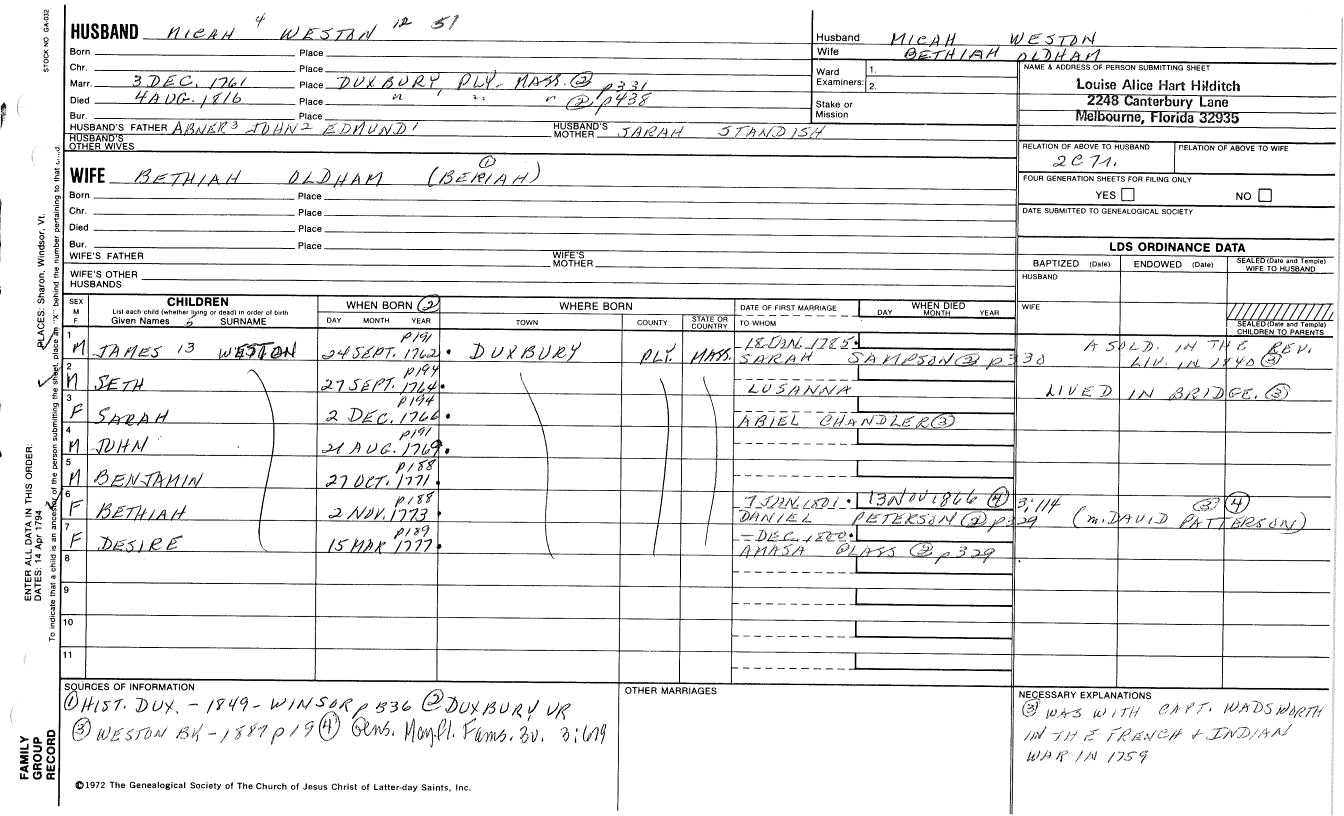 STOCK NO GA-032
HUSBAND MICAH 4 WESTON 12 51
Born Place
Chr. Place
Marr. 3 DEC. 1761 Place DUXBURY, PLY. MASS. ② p331
Died 4 AUG. 1816 Place " " " ② p438
Bur. Place
HUSBAND'S FATHER ABNER 3 JOHN 2 EDMUND 1 HUSBAND'S MOTHER SARAH STANDISH
HUSBAND'S OTHER WIVES
WIFE BETHIAH OLDHAM (BERIAH) ①
Born Place
Chr. Place
Died Place
Bur. Place
WIFE'S FATHER WIFE'S MOTHER
WIFE'S OTHER HUSBANDS
Husband MICAH WESTON
Wife BETHIAH OLDHAM
Ward Examiners: 1. 2.
Stake or Mission
NAME & ADDRESS OF PERSON SUBMITTING SHEET
Louise Alice Hart Hilditch
2248 Canterbury Lane
Melbourne, Florida 32935
RELATION OF ABOVE TO HUSBAND RELATION OF ABOVE TO WIFE
FOUR GENERATION SHEETS FOR FILING ONLY
YES NO
DATE SUBMITTED TO GENEALOGICAL SOCIETY
LDS ORDINANCE DATA
BAPTIZED (Date) ENDOWED (Date) SEALED (Date and Temple) WIFE TO HUSBAND
HUSBAND
WIFE
SEALED (Date and Temple) CHILDREN TO PARENTS
SEX M F CHILDREN WHEN BORN ② WHERE BORN DATE OF FIRST MARRIAGE WHEN DIED
List each child (whether living or dead) in order of birth
Given Names 5 SURNAME DAY MONTH YEAR TOWN COUNTY STATE OR COUNTRY TO WHOM DAY MONTH YEAR
1 p191 18 JAN. 1785. A SOLD. IN THE REV.
M JAMES 13 WESTON 24 SEPT. 1762. DUXBURY PLY. MASS. SARAH SAMPSON ② p330 LIV. IN 1840 ③
2 p194
M SETH 27 SEPT. 1764. LUSANNA LIVED IN BRIDGE. ③
3 p194
F SARAH 2 DEC. 1766. ABIEL CHANDLER ③
4 p191
M JOHN 21 AUG. 1769.
5 p188
M BENJAMIN 27 OCT. 1771.
6 p188 7 JAN. 1801. 13 NOV 1866 ④ 3:114 ③ ④
F BETHIAH 2 NOV. 1773. DANIEL PETERSON ② p329 (m. DAVID PATTERSON)
7 p189 – DEC. 1800.
F DESIRE 15 MAR 1777. AMASA GLASS ② p329
8
9
10
11
SOURCES OF INFORMATION
① HIST. DUX. - 1849 - WINSOR p 336 ② DUXBURY VR
③ WESTON BK - 1887 p19 ④ Gens. May.fl. Fams. 3v. 3:679
OTHER MARRIAGES
NECESSARY EXPLANATIONS
③ WAS WITH CAPT. WADSWORTH
IN THE FRENCH & INDIAN
WAR IN 1759
©1972 The Genealogical Society of The Church of Jesus Christ of Latter-day Saints, Inc.
FAMILY GROUP RECORD
ENTER ALL DATA IN THIS ORDER:
DATES: 14 Apr 1794 PLACES: Sharon, Windsor, Vt.
To indicate that a child is an ancestor of the person submitting the sheet, place an "X" behind the number pertaining to that